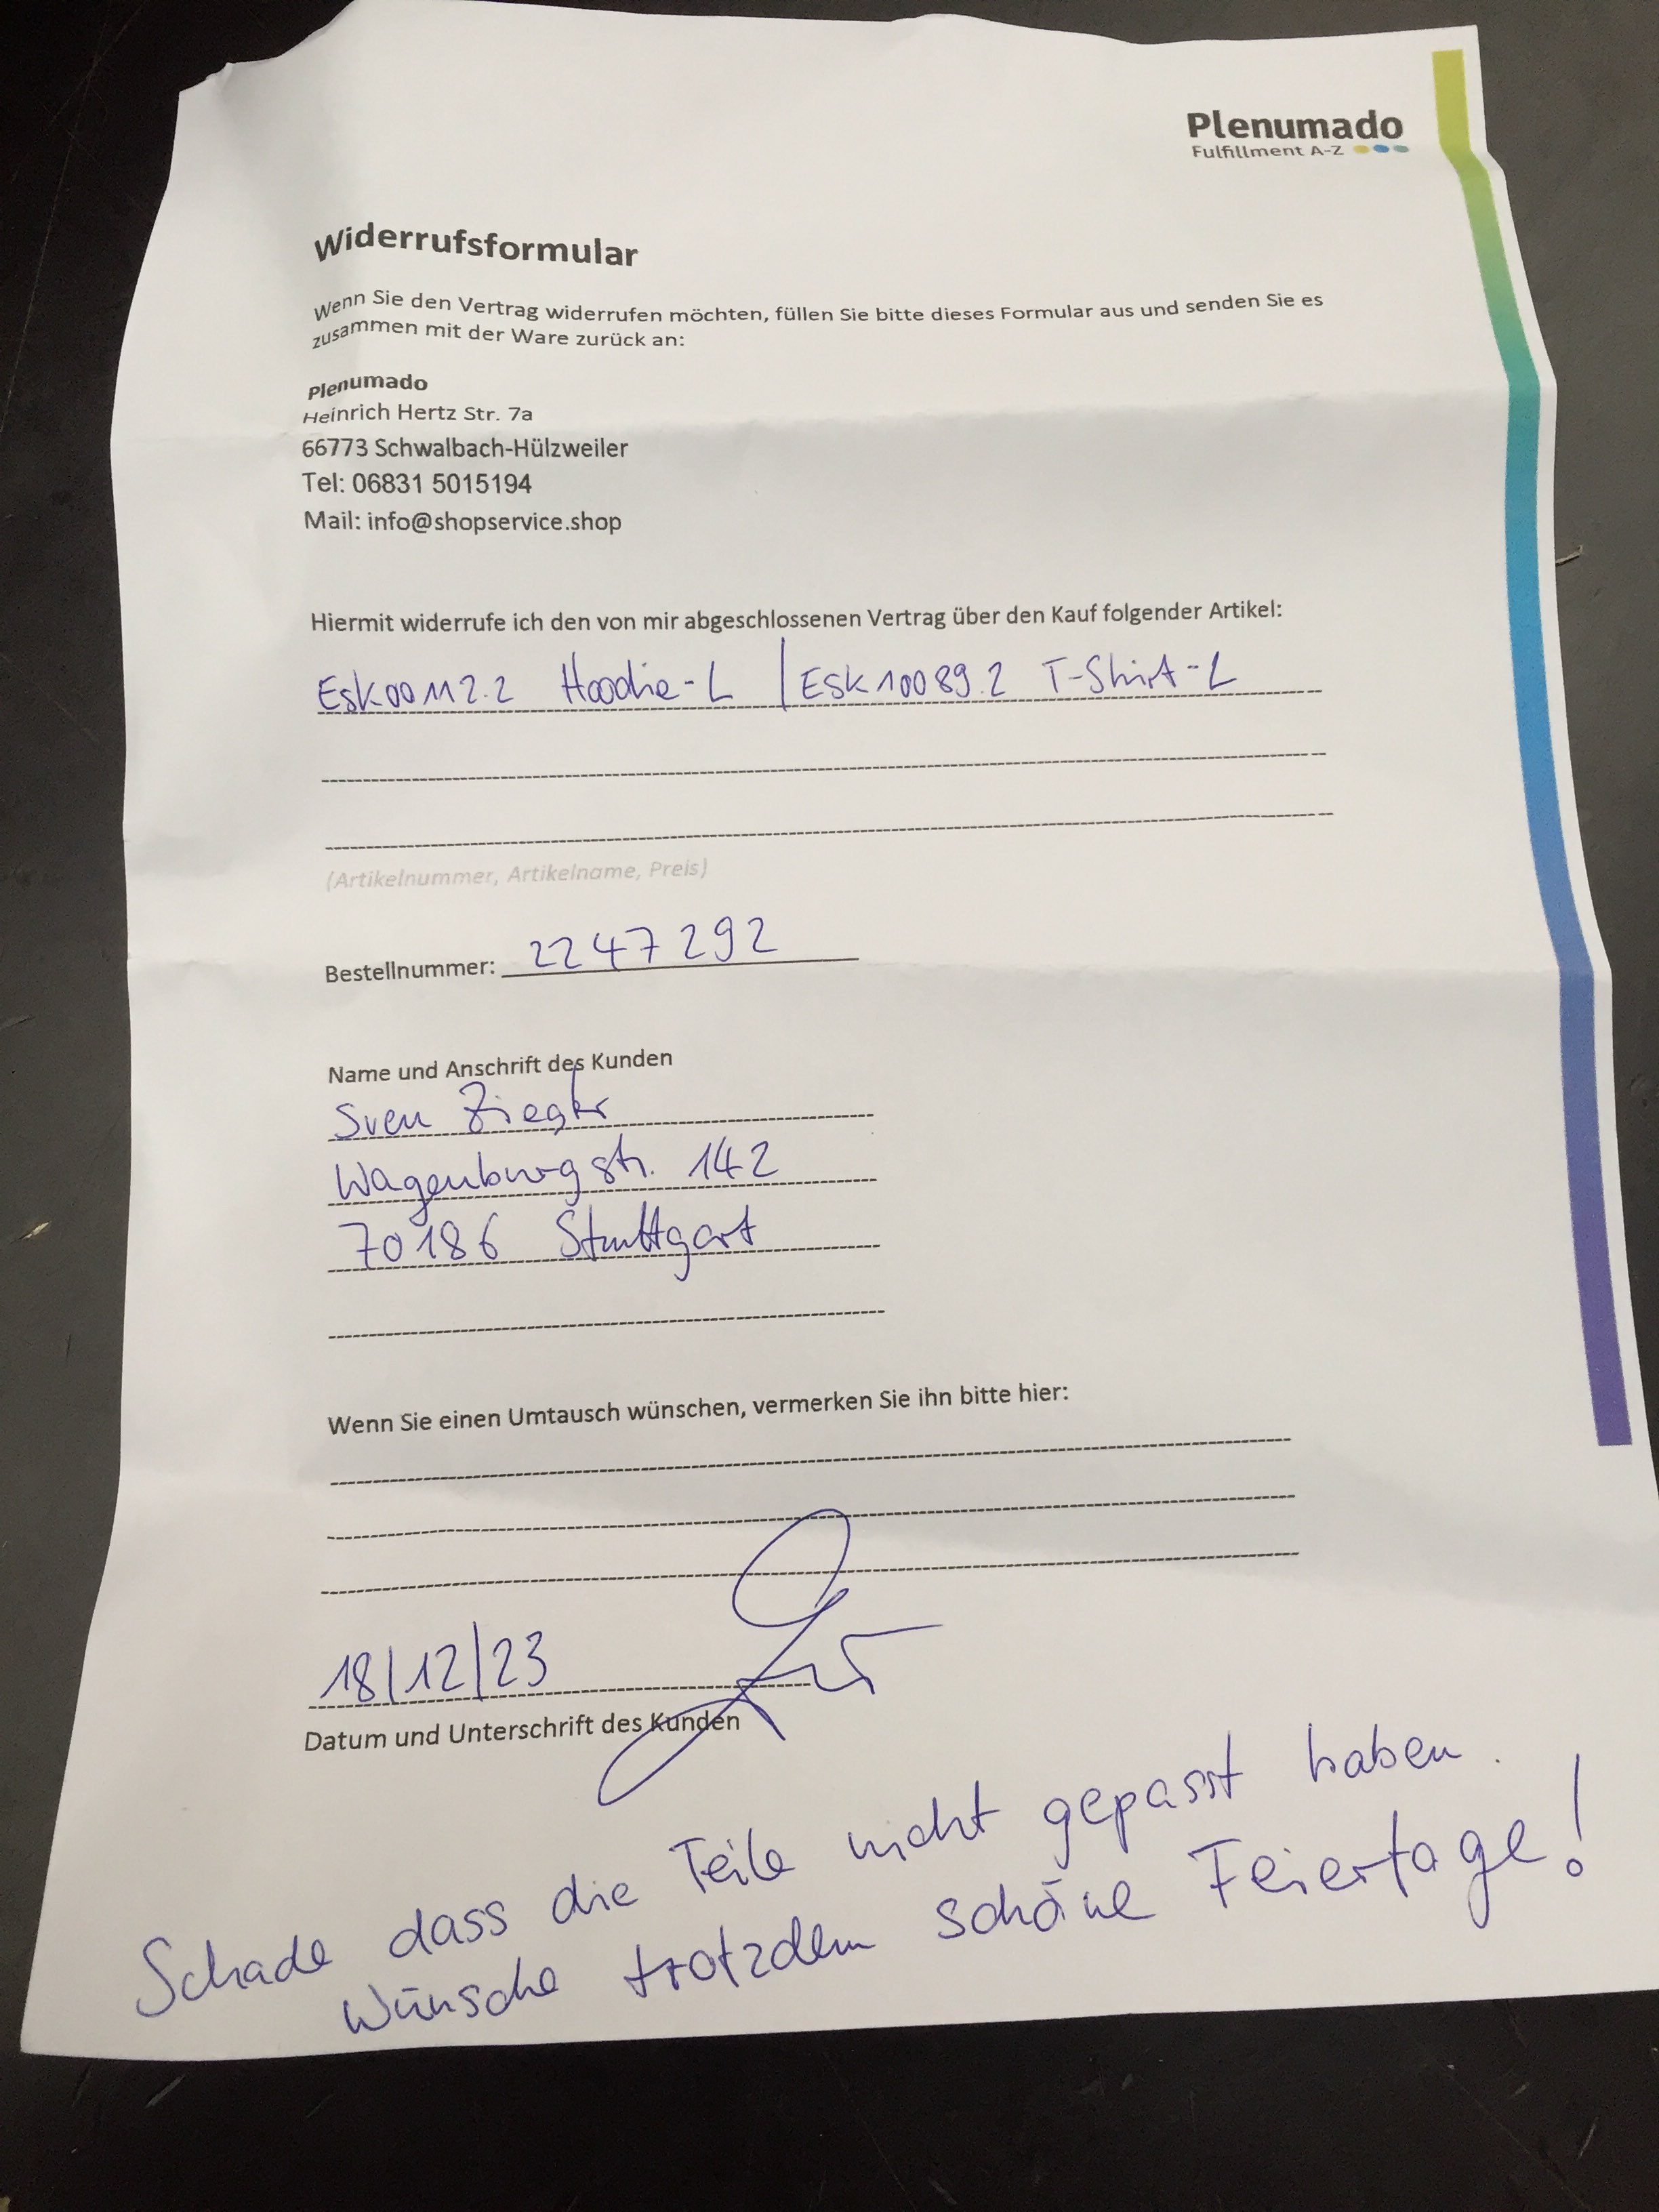 Plenumado
Fulfillment A-Z
Widerrufsformular
Wenn Sie den Vertrag widerrufen möchten, füllen Sie bitte dieses Formular aus und senden Sie es
zusammen mit der Ware zurück an:
Plenumado
Heinrich Hertz Str. 7a
66773 Schwalbach-Hülzweiler
Tel: 06831 5015194
Mail: info@shopservice.shop
Hiermit widerrufe ich den von mir abgeschlossenen Vertrag über den Kauf folgender Artikel:
Esk00112.2 Hoodie-L | Esk10089.2 T-Shirt-L
(Artikelnummer, Artikelname, Preis)
Bestellnummer: 2247292
Name und Anschrift des Kunden
Sven Ziegler
Wagenburgstr. 142
70186 Stuttgart
Wenn Sie einen Umtausch wünschen, vermerken Sie ihn bitte hier:
18/12/23
Datum und Unterschrift des Kunden
Schade dass die Teile nicht gepasst haben.
Wünsche trotzdem schöne Feiertage!